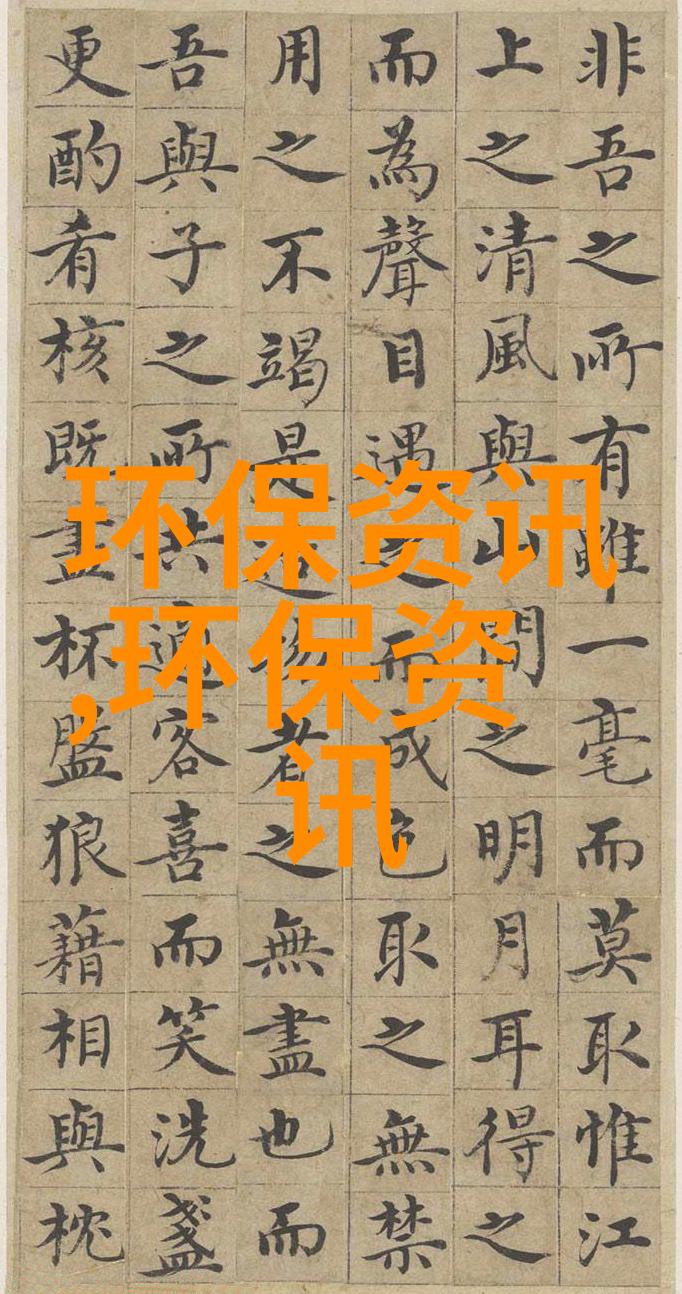 非吾之所有雖一毫而莫取惟江
上之清風與山間之明月耳得之
而為聲目遇之而成色取之無禁
用之不竭是造物者之無盡也而
吾與子之所共適客喜而笑洗盞
更酌肴核既盡杯盤狼藉相與枕
环保资讯
,环保资
讯